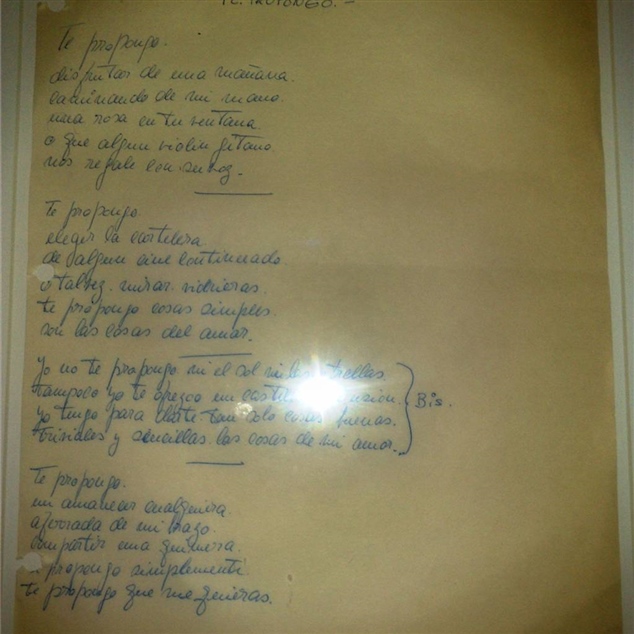 TE PROPONGO. -
Te propongo.
disfrutar de una mañana.
caminando de mi mano.
una rosa en tu ventana.
o que algun violin gitano.
nos regale con su voz.
te propongo.
elegir la cartelera.
de algun cine continuado.
o tal vez. mirar vidrieras.
te propongo cosas simples.
son las cosas del amor.
Yo no te propongo ni el sol ni las estrellas.
tampoco yo te ofrezco un
yo tengo para darte tan solo cosas buenas.
triviales y sencillas. las cosas de mi amor.
Bis.
Te propongo.
un amanecer cualquiera.
aferrada de mi brazo.
compartir una quimera.
propongo simplemente
te propongo que me quieras.